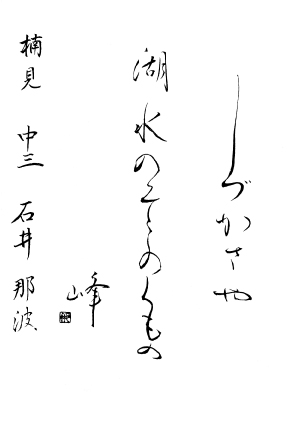 しづかさや
湖水のそこのくもの
峰
楠見 中三 石井 那波